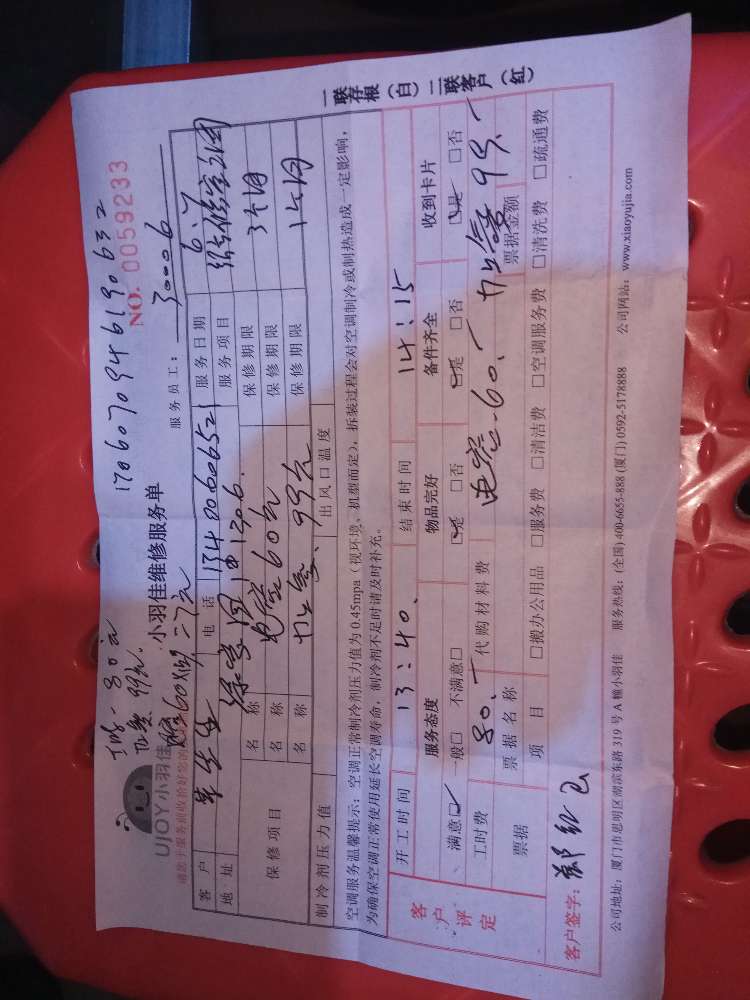 1706070946190632
NO. 0059233
UJOY小羽佳
小羽佳维修服务单
服务员工：30006
客户 电话 13400606521 服务日期 6.7
地址 1206. 服务项目
保修项目 名称 电容60元 保修期限 3个月
名称 99元 保修期限 1个月
名称 保修期限
制冷剂压力值 出风口温度
空调服务温馨提示：空调正常制冷剂压力值为0.45mpa（视环境、机型而定），拆装过程会对空调制冷或制热造成一定影响，
为确保空调正常使用延长空调寿命，制冷剂不足时请及时补充。
开工时间 13:40. 结束时间 14:15
客户评定
服务态度 物品完好 备件齐全 收到卡片
满意☑ 一般□ 不满意□ ☑是 □否 ☑是 □否 ☑是 □否
工时费 80.- 代购材料费 电容-60.- 99.-
票据 票据名称 票据金额
项目 □搬办公用品 □服务费 □清洁费 □空调服务费 □清洗费 □疏通费
客户签字：
公司地址：厦门市思明区湖滨东路319号A幢小羽佳 服务热线：(全国) 400-6655-888 (厦门) 0592-5178888 公司网站：www.xiaoyujia.com
一联存根（白）二联客户（红）